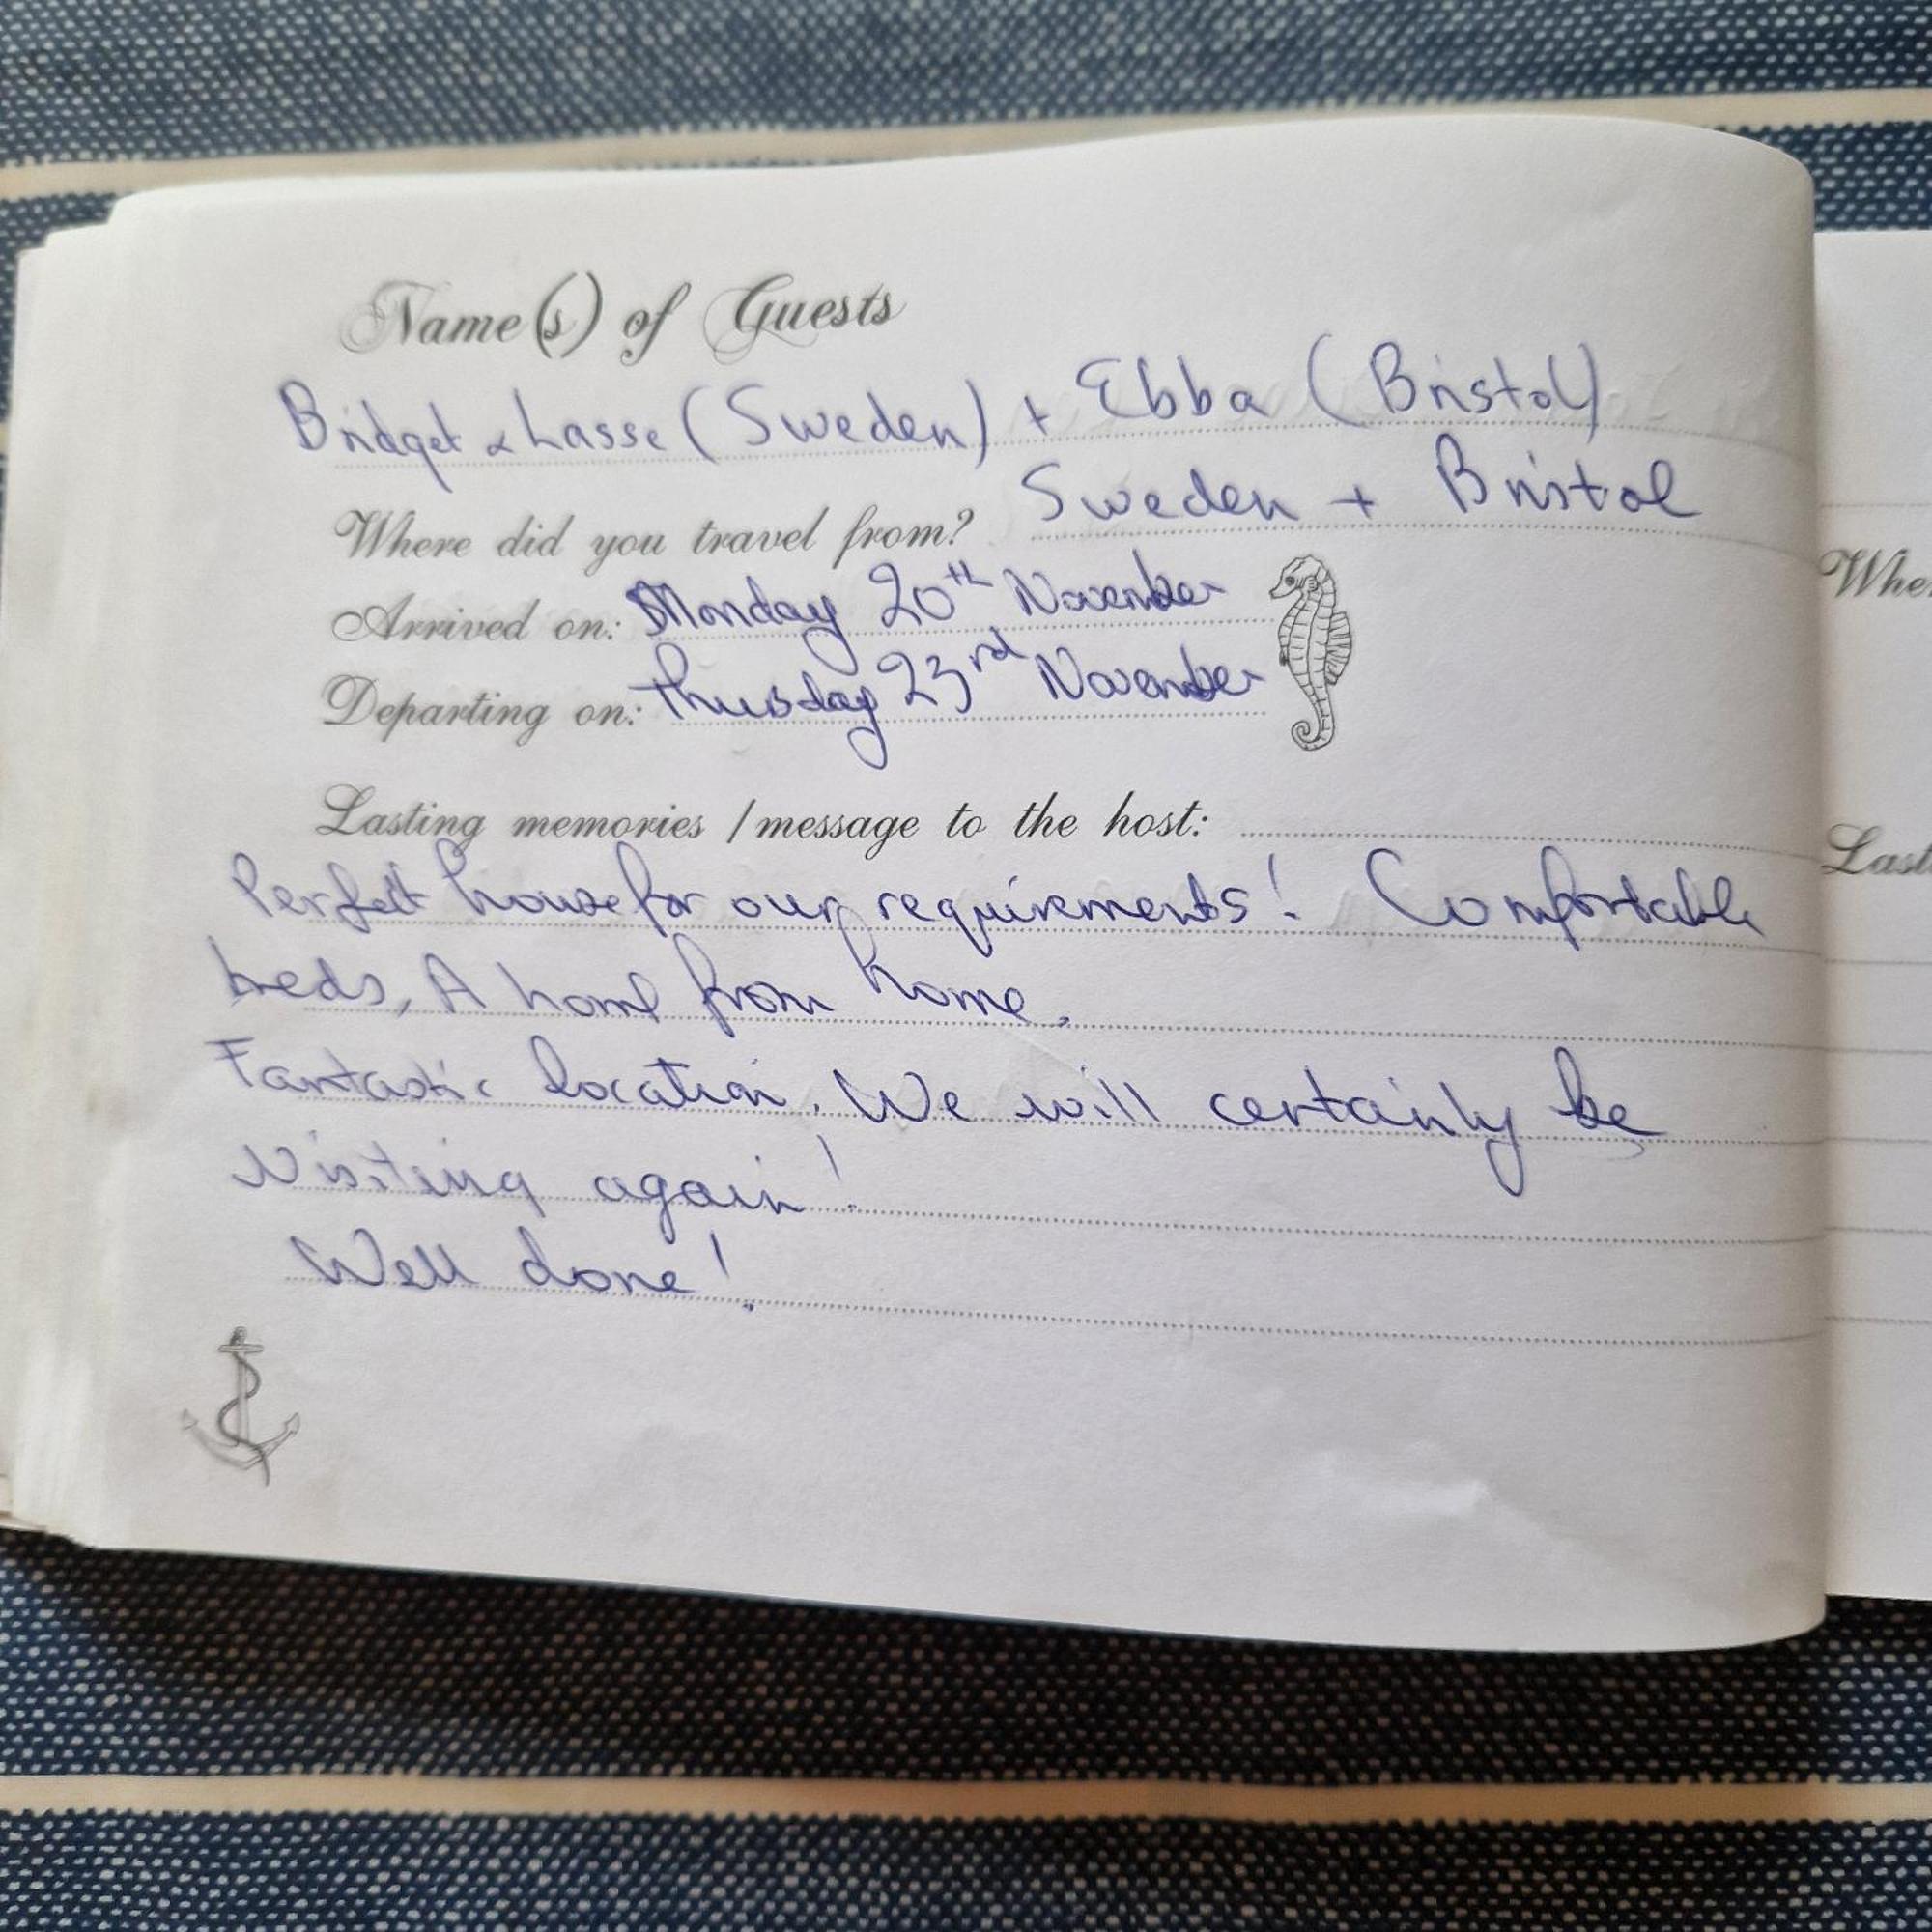 Name(s) of Guests
Bridget & Lasse (Sweden) + Ebba (Bristol)
Where did you travel from? Sweden + Bristol
Arrived on: Monday 20th November
Departing on: Thursday 23rd November
Lasting memories / message to the host:
Perfect house for our requirements! Comfortable
beds, A home from home.
Fantastic location. We will certainly be
visiting again!
Well done!
Whe
Last